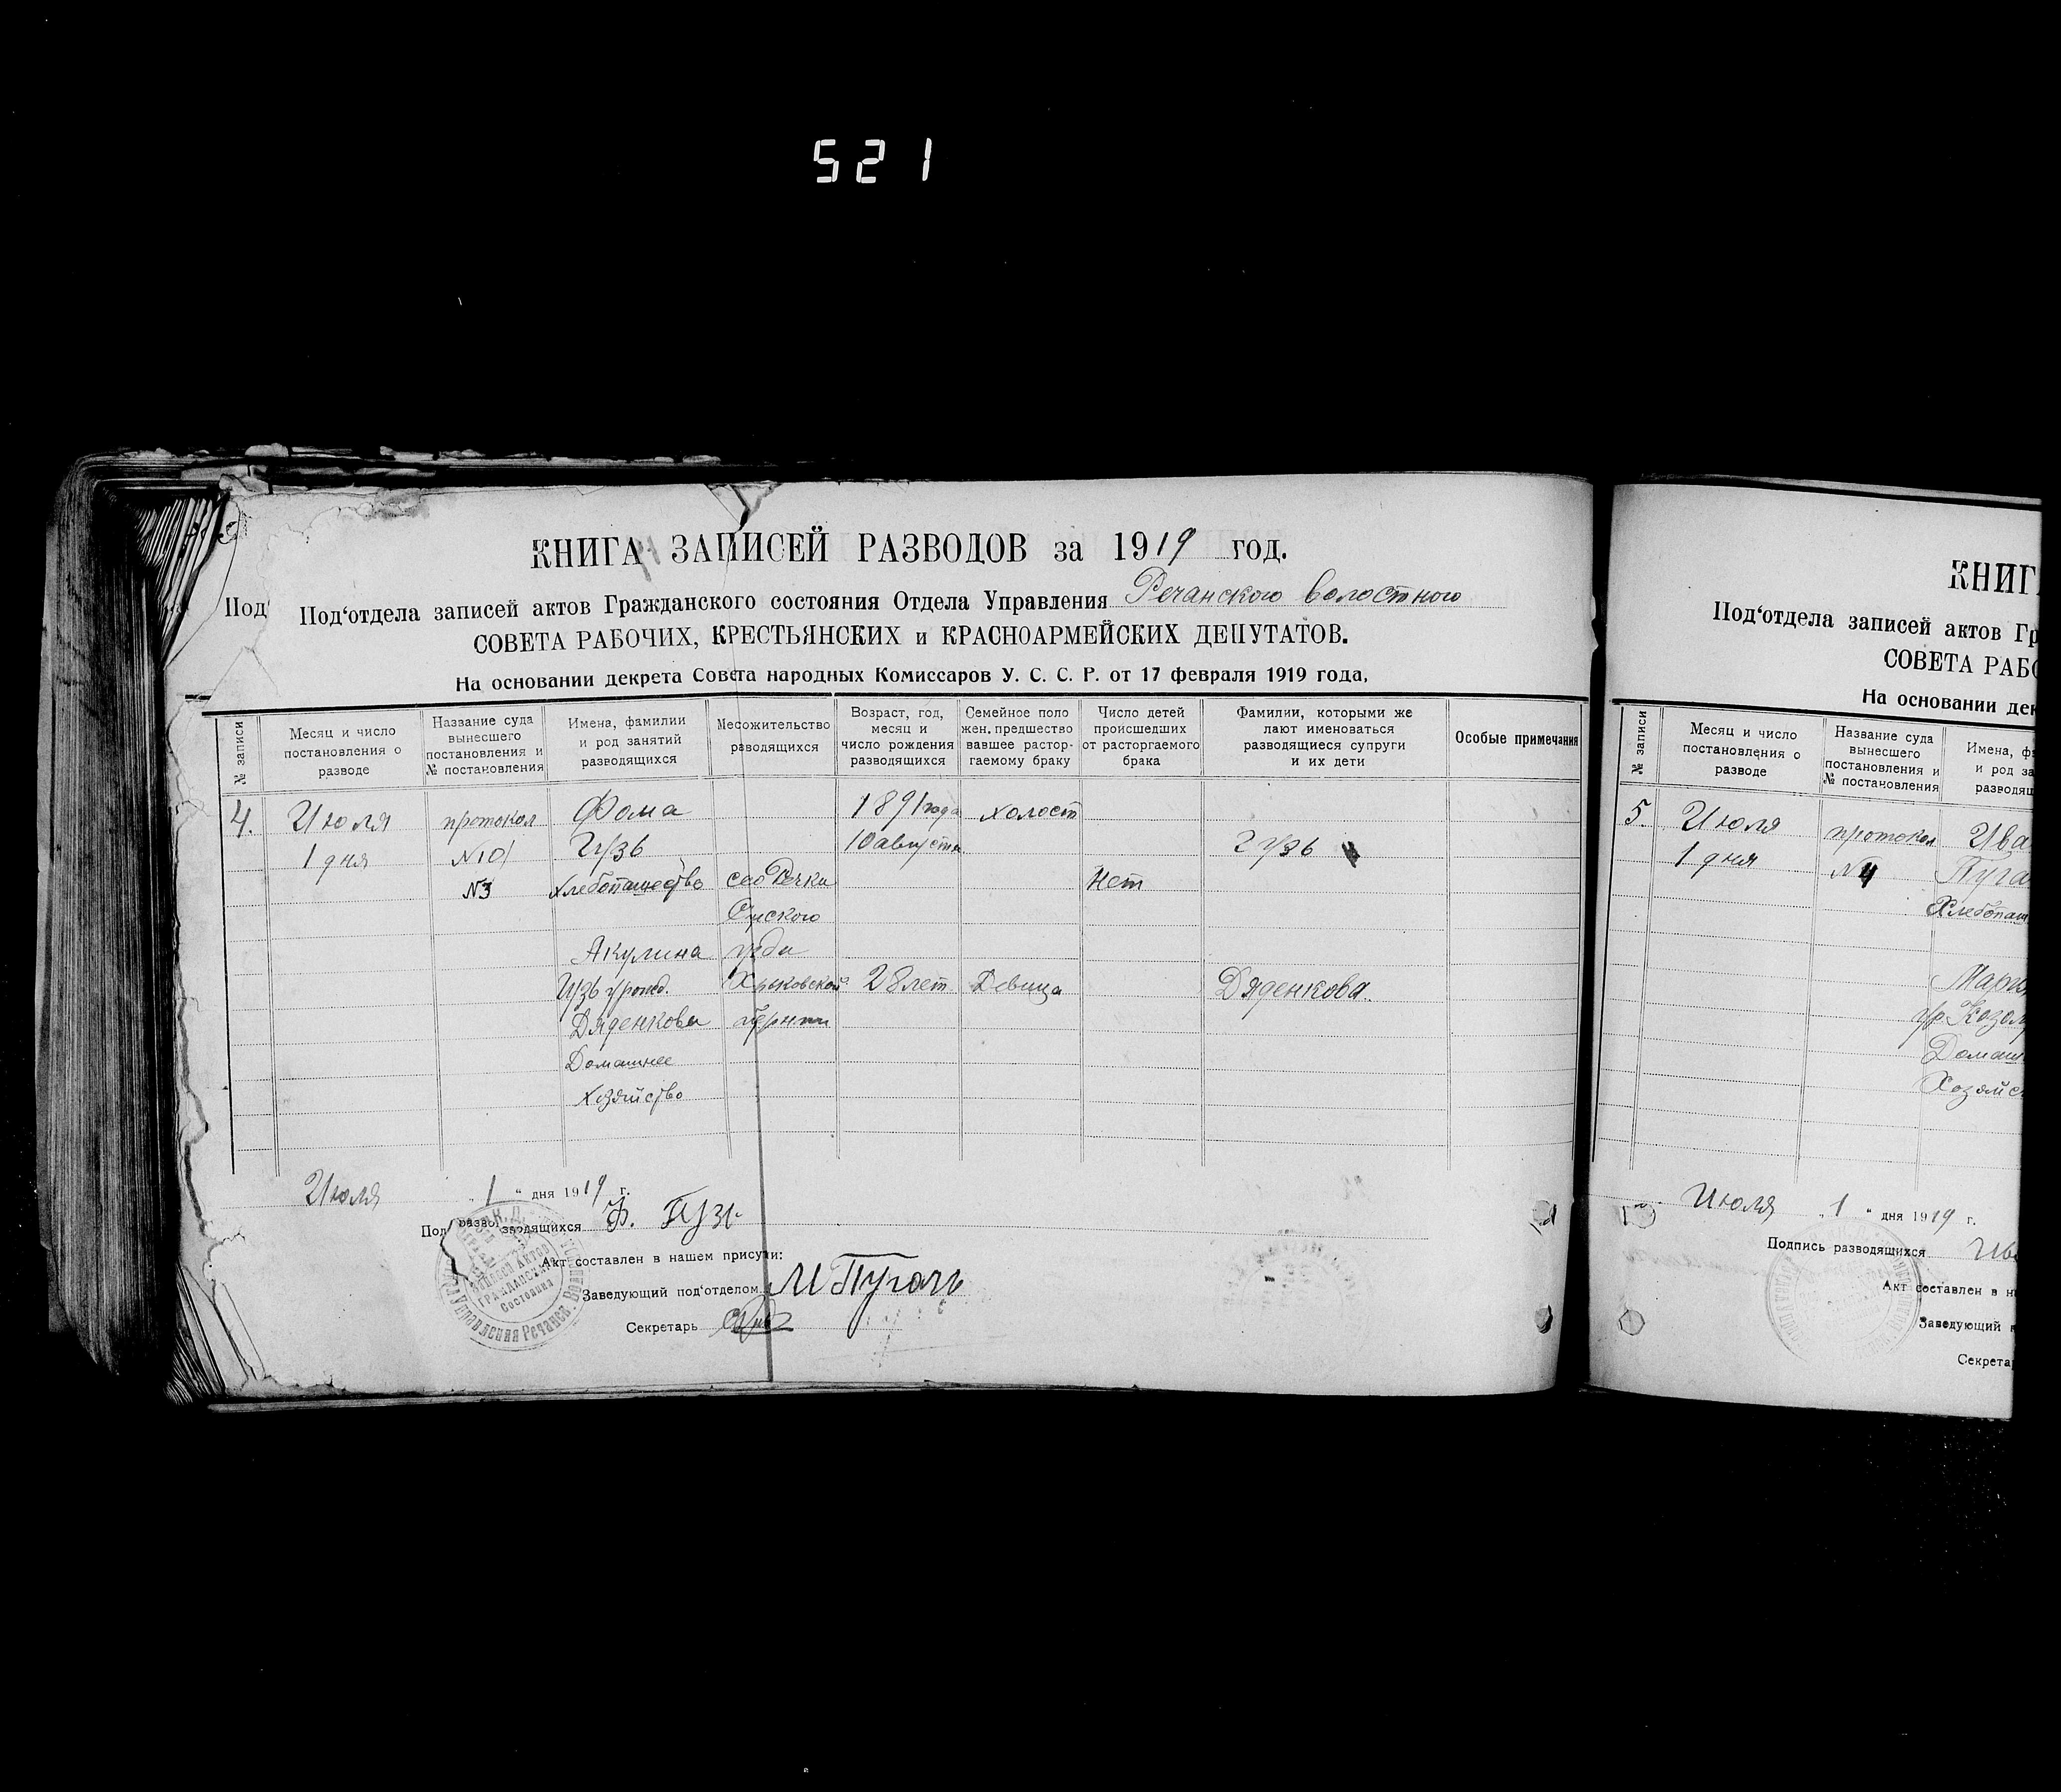 521
КНИГА ЗАПИСЕЙ РАЗВОДОВ за 1919 год.
Под
Под‘отдела записей актов Гражданского состояния Отдела Управления Речанского волостного
СОВЕТА РАБОЧИХ, КРЕСТЬЯНСКИХ и КРАСНОАРМЕЙСКИХ ДЕПУТАТОВ.
На основании декрета Совета народных Комиссаров У. С. С. Р. от 17 февраля 1919 года,
№ записи
Месяц и число
постановления о
разводе
Название суда
вынесшего
постановления и
№ постановления
Имена, фамилии
и род занятий
разводящихся
Месожительство
разводящихся
Возраст, год,
месяц и
число рождения
разводящихся
Семейное поло
жен. предшество
вавшее растор-
гаемому браку
Число детей
происшедших
от расторгаемого
брака
Фамилии, которыми же
лают именоваться
разводящиеся супруги
и их дети
Особые примечания
4.
Июля
1 дня
протокол
№ 10
№3
Фома
Гузь
хлебопашество
Акулина
Гузь урожд.
Дяденкова
Домашнее
Хозяйство
село Речки
Сумского
уезда
Харьковской
губернии
1891 года
10 августа
28 лет
холост
Девица
Нет
Гузь
Дяденкова
Июля „ 1 “ дня 1919 г.
Под разво зводящихся Ф. Гузь
Акт составлен в нашем присути:
Заведующий под‘отделом М Пугачь
Секретарь
Записей Актов
Гражданск.
Состояния
Управления Речанск.
КНИГ
Под‘отдела записей актов Гр
СОВЕТА РАБО
На основании дек
№ записи
Месяц и число
постановления о
разводе
Название суда
вынесшего
постановления и
№ постановления
Имена, фа
и род за
разводящ
5.
Июля
1 дня
протокол
№ 4
Ива
Пуга
Хлебопаш
Мари
ур Козол
Домаш
Хозяйс
Июля „ 1 “ дня 1919 г.
Подпись разводящихся Ив
Акт составлен в н
Заведующий п
Секрета